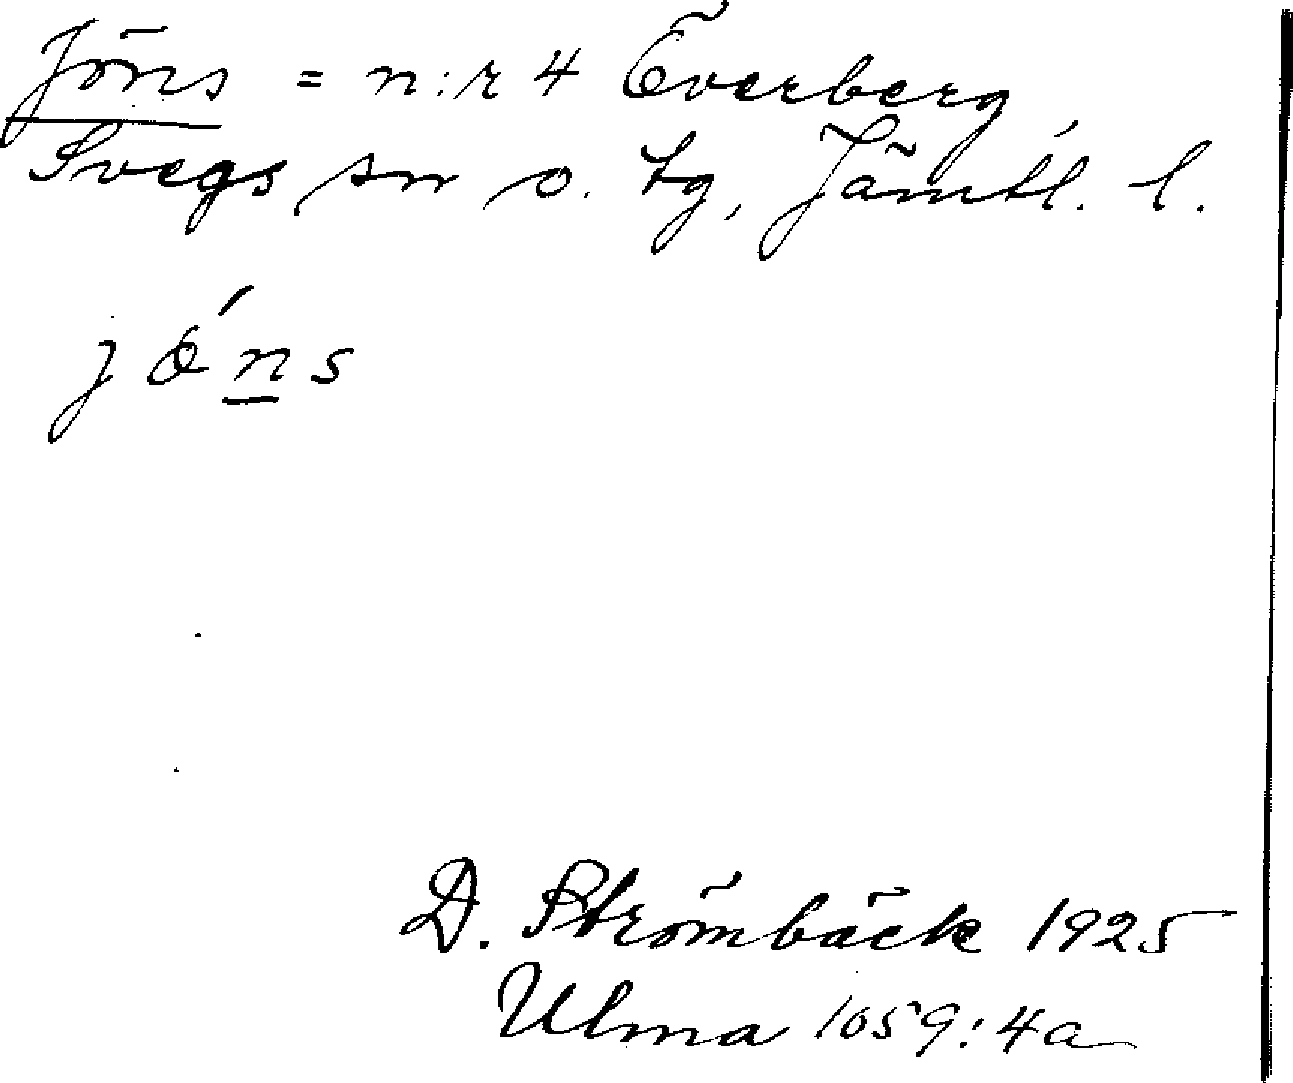 Jöns = n:r 4 Överberg,
Svegs sn o. tg, Jämtl. l.
jǿns
D. Strömbäck 1925
Ulma 1059:4a